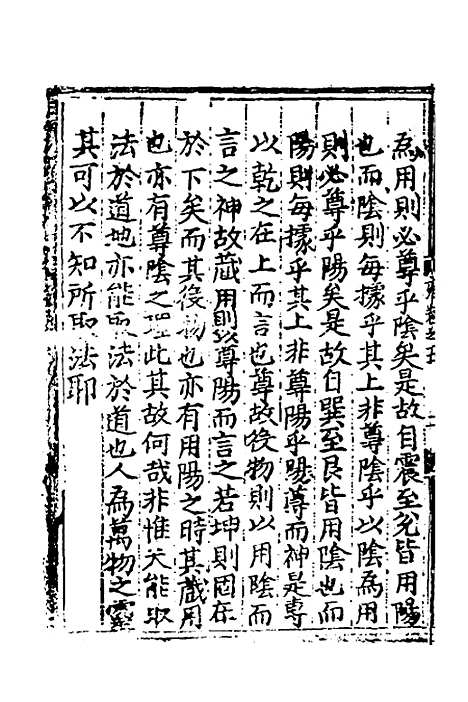 為用則必尊乎陰矣是故自震至兌皆用陽
也而陰則每據乎其上非尊陰乎以陰為用
則必尊乎陽矣是故自巽至艮皆用陰也而
陽則每據乎其上非尊陽乎陽尊而神是專
以乾之在上而言也尊故役物則以用陰而
言之神故藏用則以尊陽而言之若坤則固在
於下矣而其役物也亦有用陽之時其藏用
也亦有尊陰之理此其故何哉非惟天能取
法於道地亦能取法於道也人為萬物之靈
其可以不知所取法耶